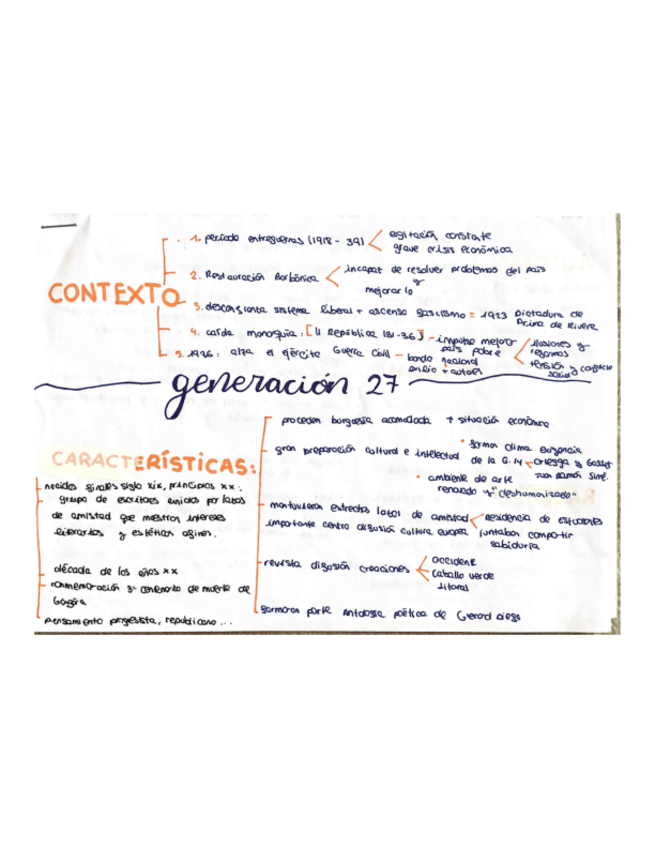 CONTEXTO
1. período entreguerras (1918 - 39) < agitación constate
grave crisis económica
2. Restauración Borbónica < incapat de resolver problemas del país
y
mejorar lo
3. desconfianta sistema liberal + ascenso fascismo = 1923 Dictadura de
Primo de Rivera
4. caída monoquia: [II República (31-36)] - impulso mejora
país pobre < ilusiones y
reformas
tensión y conflicto
social
5. 1936: alza el ejército Guerra Civil - bando nacional
exilio + autores
generación 27
CARACTERÍSTICAS:
nacidos finales siglo xix, principios xx:
grupo de escritores unidos por lazos
de amistad que muestran intereses
literarios y estéticos afines.
década de los años xx
conmemoración 3er centenario de muerte de
Góngora
pensamiento progresista, republicano...
proceden burguesía acomodada + situación económica
gran preparación cultural e intelectual
• forman clima exigencia
de la G.14 < Ortega y Gasset
Juan Ramón Jiné.
• ambiente de arte
renovado y "deshumanizado"
mantuvieron estrechos lazos de amistad < residencia de estudiantes
importante centro difusión cultura europea juntaban compartir
sabiduría
revista difusión creaciones < occidente
Caballo verde
litoral
formaron parte Antología poética de Gerard Diego